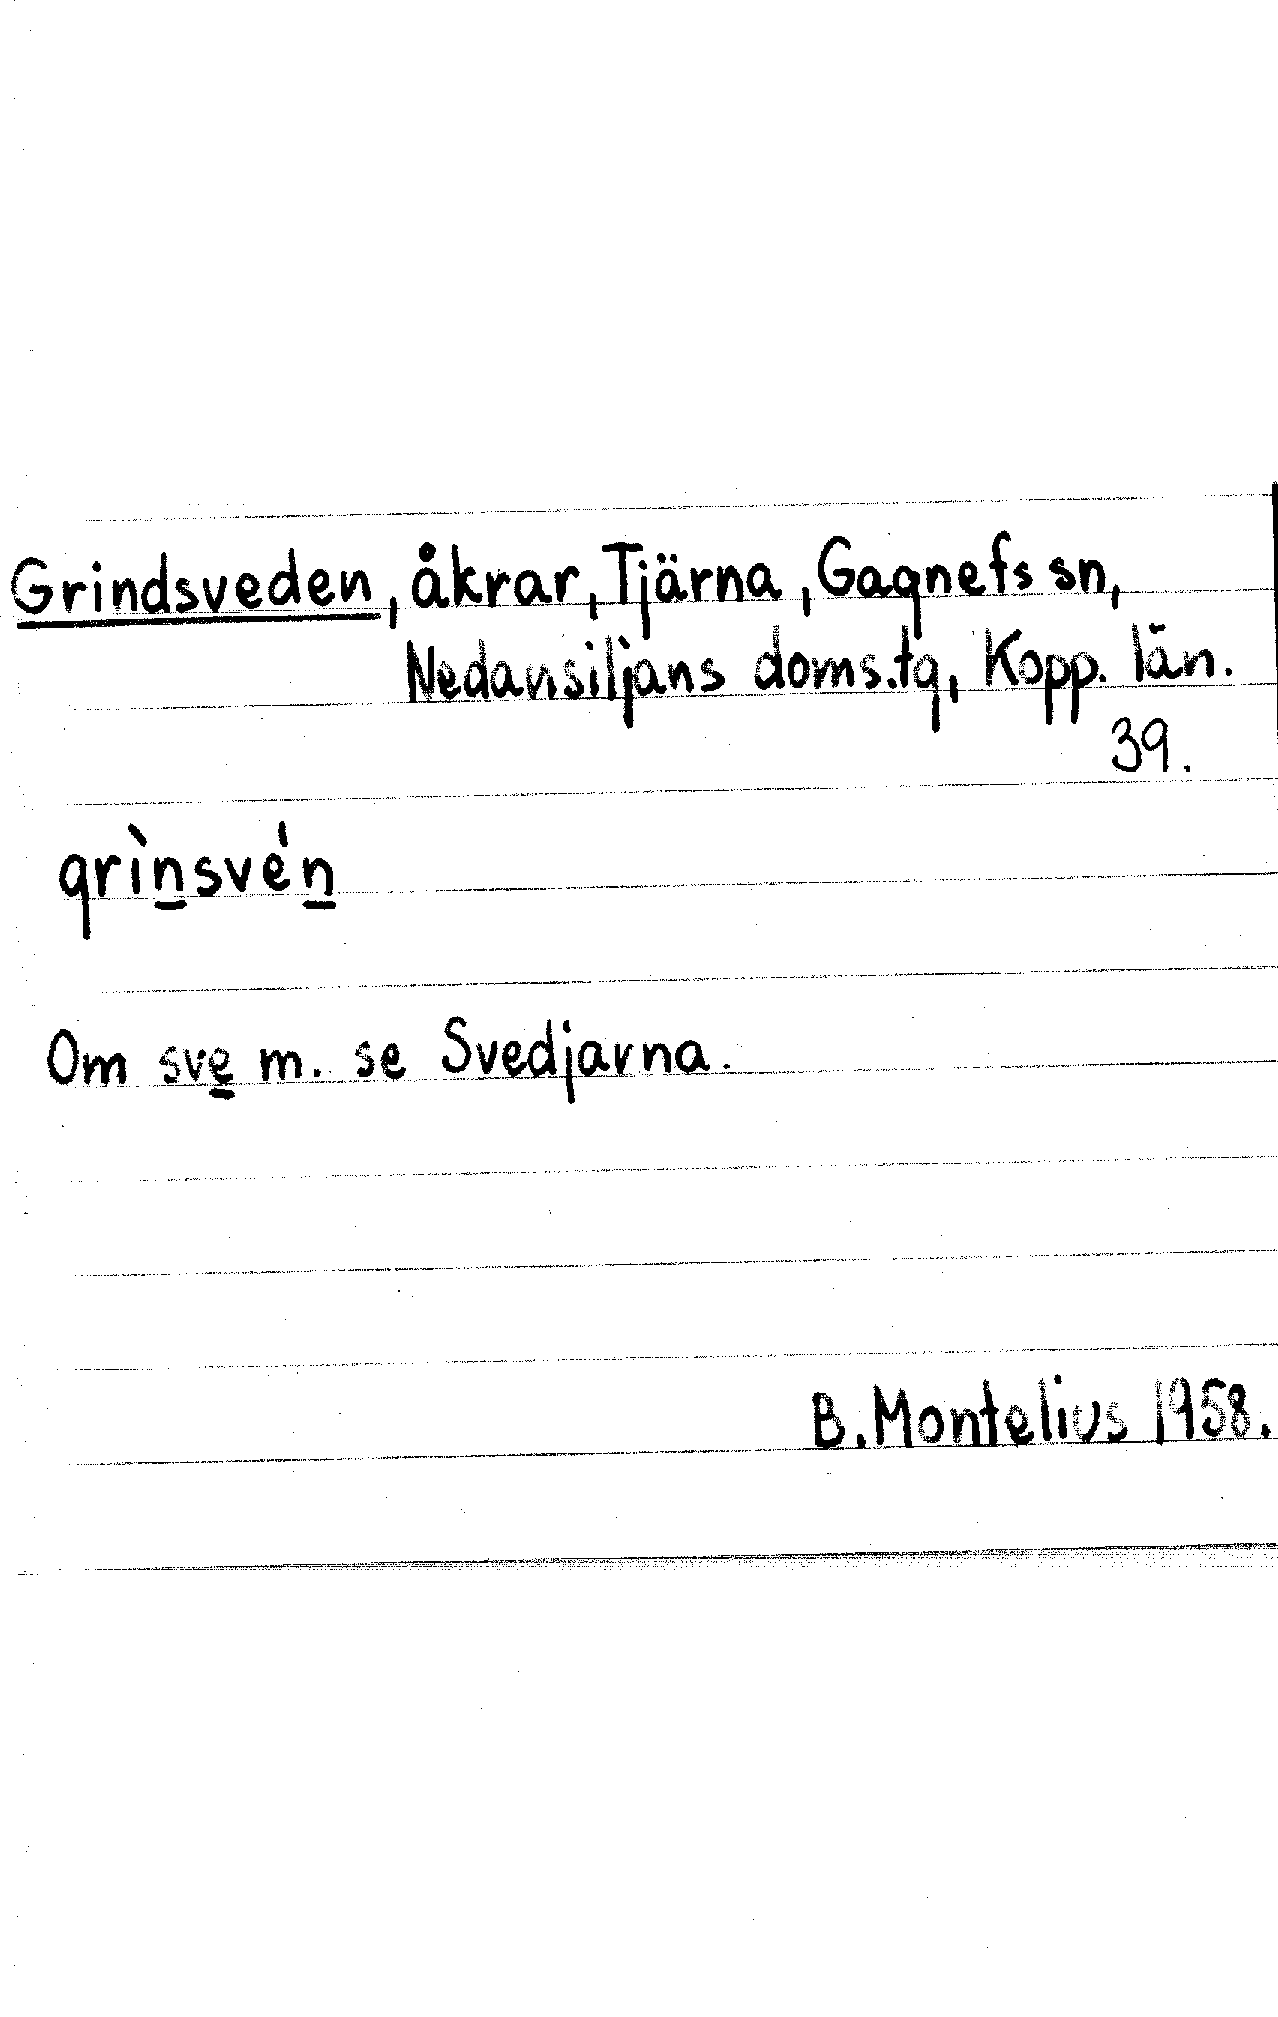 Grindsveden, åkrar, Tjärna, Gagnefs sn,
Nedansiljans doms.tg, Kopp. län.
39.
grìn̲svén̲
Om sve̲ m. se Svedjarna.
B. Montelius 1958.